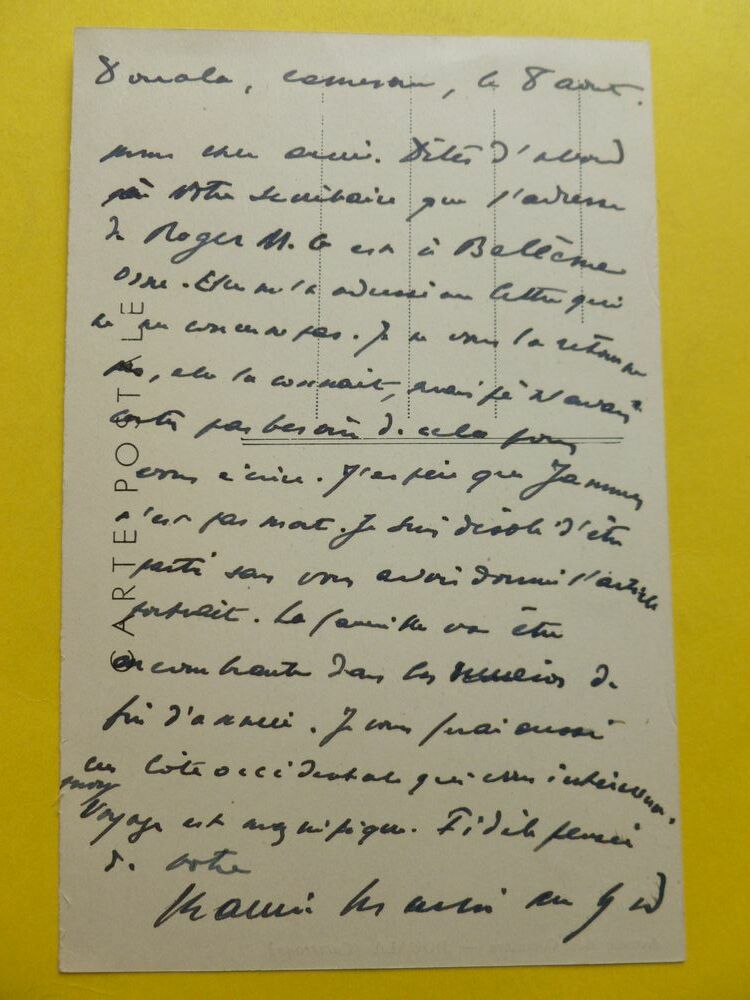 Douala, Cameroun, le 8 aout.
mon cher ami. Dites d'abord
à votre secrétaire que l'adresse
de Roger M. G est à Bellème
Orne. Elle m'a adressé une lettre qui
ne me concerne pas. Je ne vous la retourne
pas, elle la connait, mais je n'avais
certes pas besoin de cela pour
vous écrire. J'espère que Jammes
n'est pas mort. Je suis désolé d'être
parti sans vous avoir donné l'article
portrait. La famille va être
encombrante dans les numéros de
fin d'année. Je vous ferai aussi
une Côte occidentale qui vous intéressera.
mon
Voyage est magnifique. Fidèle pensée
de votre
Maurice Martin du Gard
CARTE POSTALE